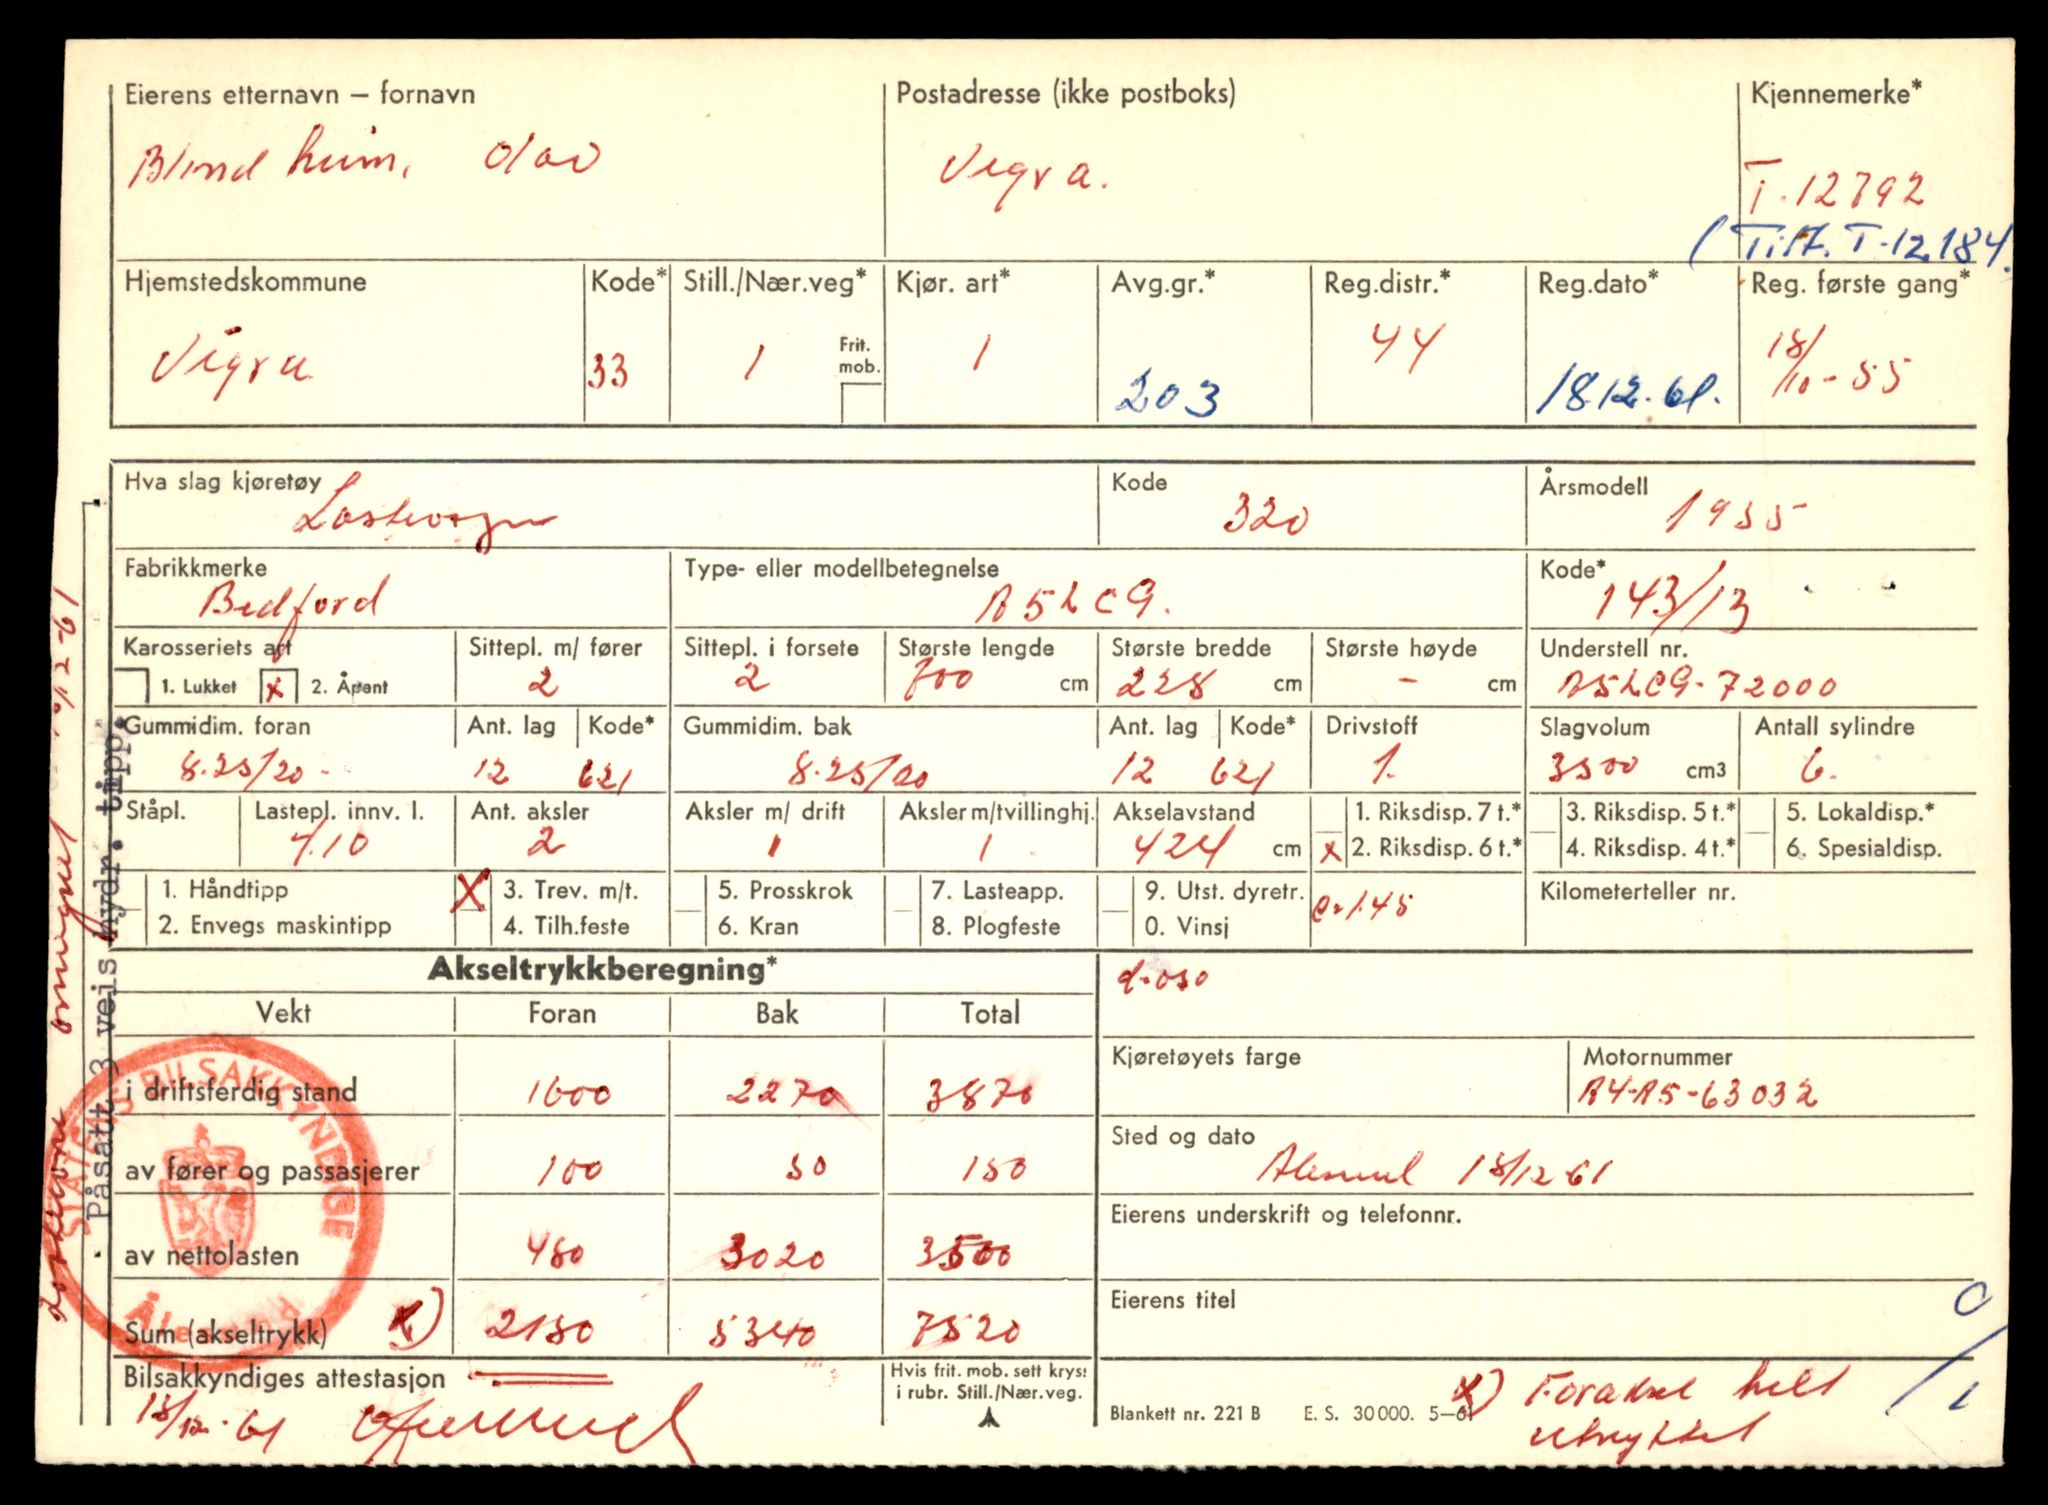 Eierens etternavn – fornavn
Blindheim, Olav
Postadresse (ikke postboks)
Vigra.
Kjennemerke*
T-12792
(Tilh. T-12184.
Hjemstedskommune
Vigra
Kode*
33
Still./Nær.veg*
1
Frit.
mob.
Kjør. art*
1
Avg.gr.*
203
Reg.distr.*
44
Reg.dato*
18.12.61.
Reg. første gang*
18/10-55
Hva slag kjøretøy
Lastevogn
Kode
320
Årsmodell
1955
Fabrikkmerke
Bedford
Type- eller modellbetegnelse
A5LCG.
Kode*
143/13
Karosseriets art
1. Lukket x 2. Åpent
Sittepl. m/ fører
2
Sittepl. i forsete
2
Største lengde
700 cm
Største bredde
228 cm
Største høyde
- cm
Understell nr.
A5LCG-72000
Gummidim. foran
8.25/20-
Ant. lag
12
Kode*
621
Gummidim. bak
8.25/20
Ant. lag
12
Kode*
621
Drivstoff
1.
Slagvolum
3500 cm3
Antall sylindre
6.
Ståpl.
Lastepl. innv. l.
4.10
Ant. aksler
2
Aksler m/ drift
1
Aksler m/tvillinghj.
1
Akselavstand
424 cm
1. Riksdisp. 7 t.*
x 2. Riksdisp. 6 t.*
3. Riksdisp. 5 t.*
4. Riksdisp. 4 t.*
5. Lokaldisp.*
6. Spesialdisp.
1. Håndtipp
2. Envegs maskintipp
X 3. Trev. m/t.
4. Tilh.feste
5. Prosskrok
6. Kran
7. Lasteapp.
8. Plogfeste
9. Utst. dyretr.
0. Vinsj
c=1.45
Kilometerteller nr.
Akseltrykkberegning*
d-050
Vekt Foran Bak Total
i driftsferdig stand 1600 2270 3870
av fører og passasjerer 100 50 150
av nettolasten 480 3020 3500
Sum (akseltrykk) x) 2180 5340 7520
Kjøretøyets farge
Motornummer
A4-A5-63032
Sted og dato
Ålesund 18/12-61
Eierens underskrift og telefonnr.
Eierens titel
Bilsakkyndiges attestasjon
18/12-61
Hvis frit. mob. sett kryss
i rubr. Still./Nær.veg.
Blankett nr. 221 B E. S. 30 000. 5–61
x) Foraksel helt
utnyttet
Påsatt 3 veis hydr. tipp.
STATENS BILSAKKYNDIGE
Ålesund